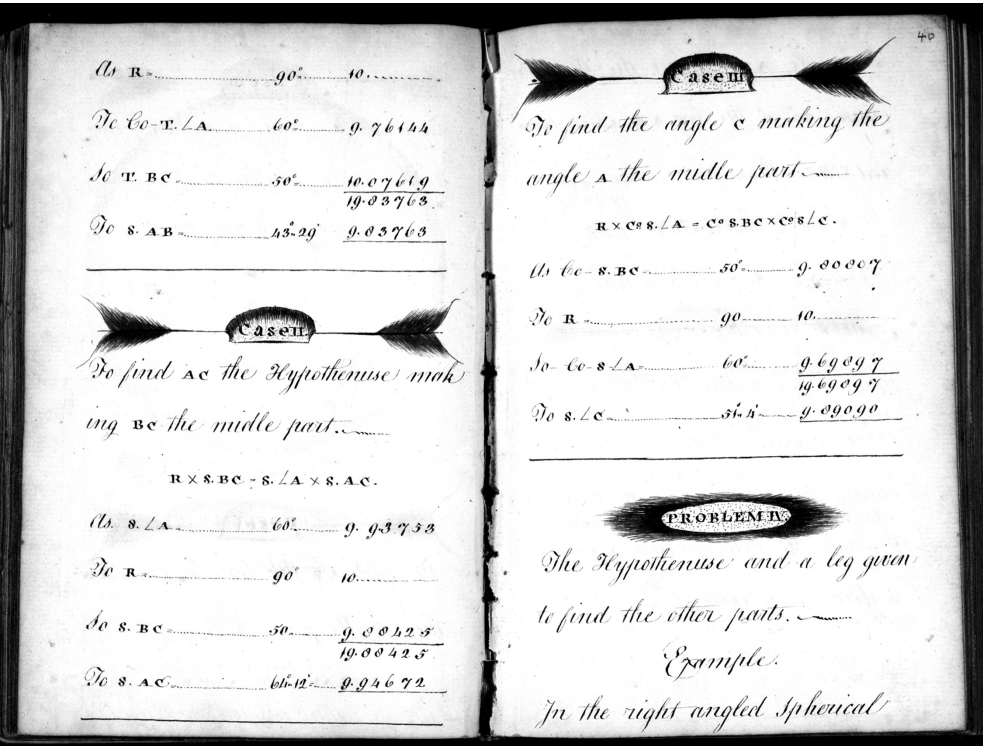 As R = 90° 10.
To Co-T. ∠A 60° 9.76144
So T. BC = 50° 10.07619
19.83763.
To S. AB = 43°-29' 9.83763
Case II.
To find AC the Hypothenuse mak
ing BC the midle part.
R × S. BC = S. ∠A × S. AC.
As. S. ∠A = 60° 9.93753
To R = 90° 10
So S. BC = 50 9.88425
19.88425.
To S. AC = 64°-12' 9.94672
40
Case III
To find the angle C making the
angle A the midle part
R × Co S. ∠A = Co S. BC × Co S ∠C.
As Co-S. BC 50° 9.80807
To R = 90 10.
So-Co-S ∠A = 60° 9.69897
19.69897
To S. ∠C 51°-4' 9.89090
PROBLEM IV.
The Hypothenuse and a leg given
to find the other parts.
Example.
In the right angled Spherical